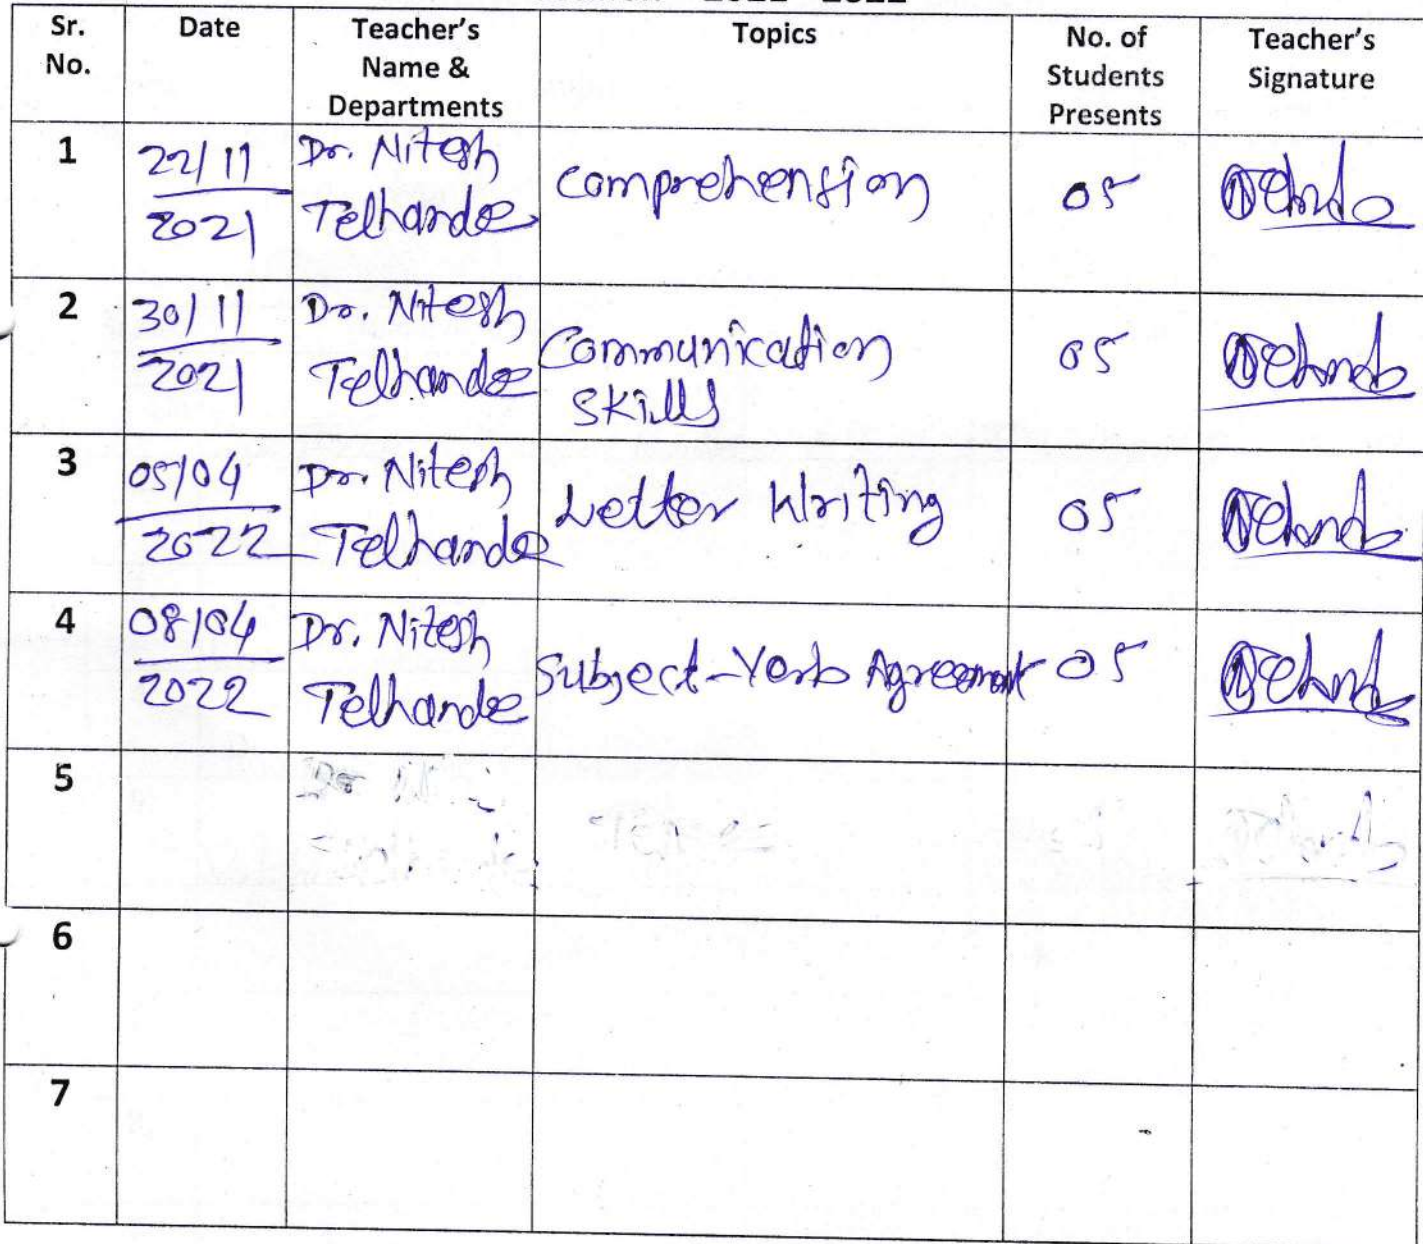 Sr. No. Date Teacher's Name & Departments Topics No. of Students Presents Teacher's Signature
1 22/11 2021 Dr. Nitesh Telhande Comprehension 05
2 30/11 2021 Dr. Nitesh Telhande Communication Skills 05
3 05/04 2022 Dr. Nitesh Telhande Letter Writing 05
4 08/04 2022 Dr. Nitesh Telhande Subject-Verb Agreement 05
5
6
7